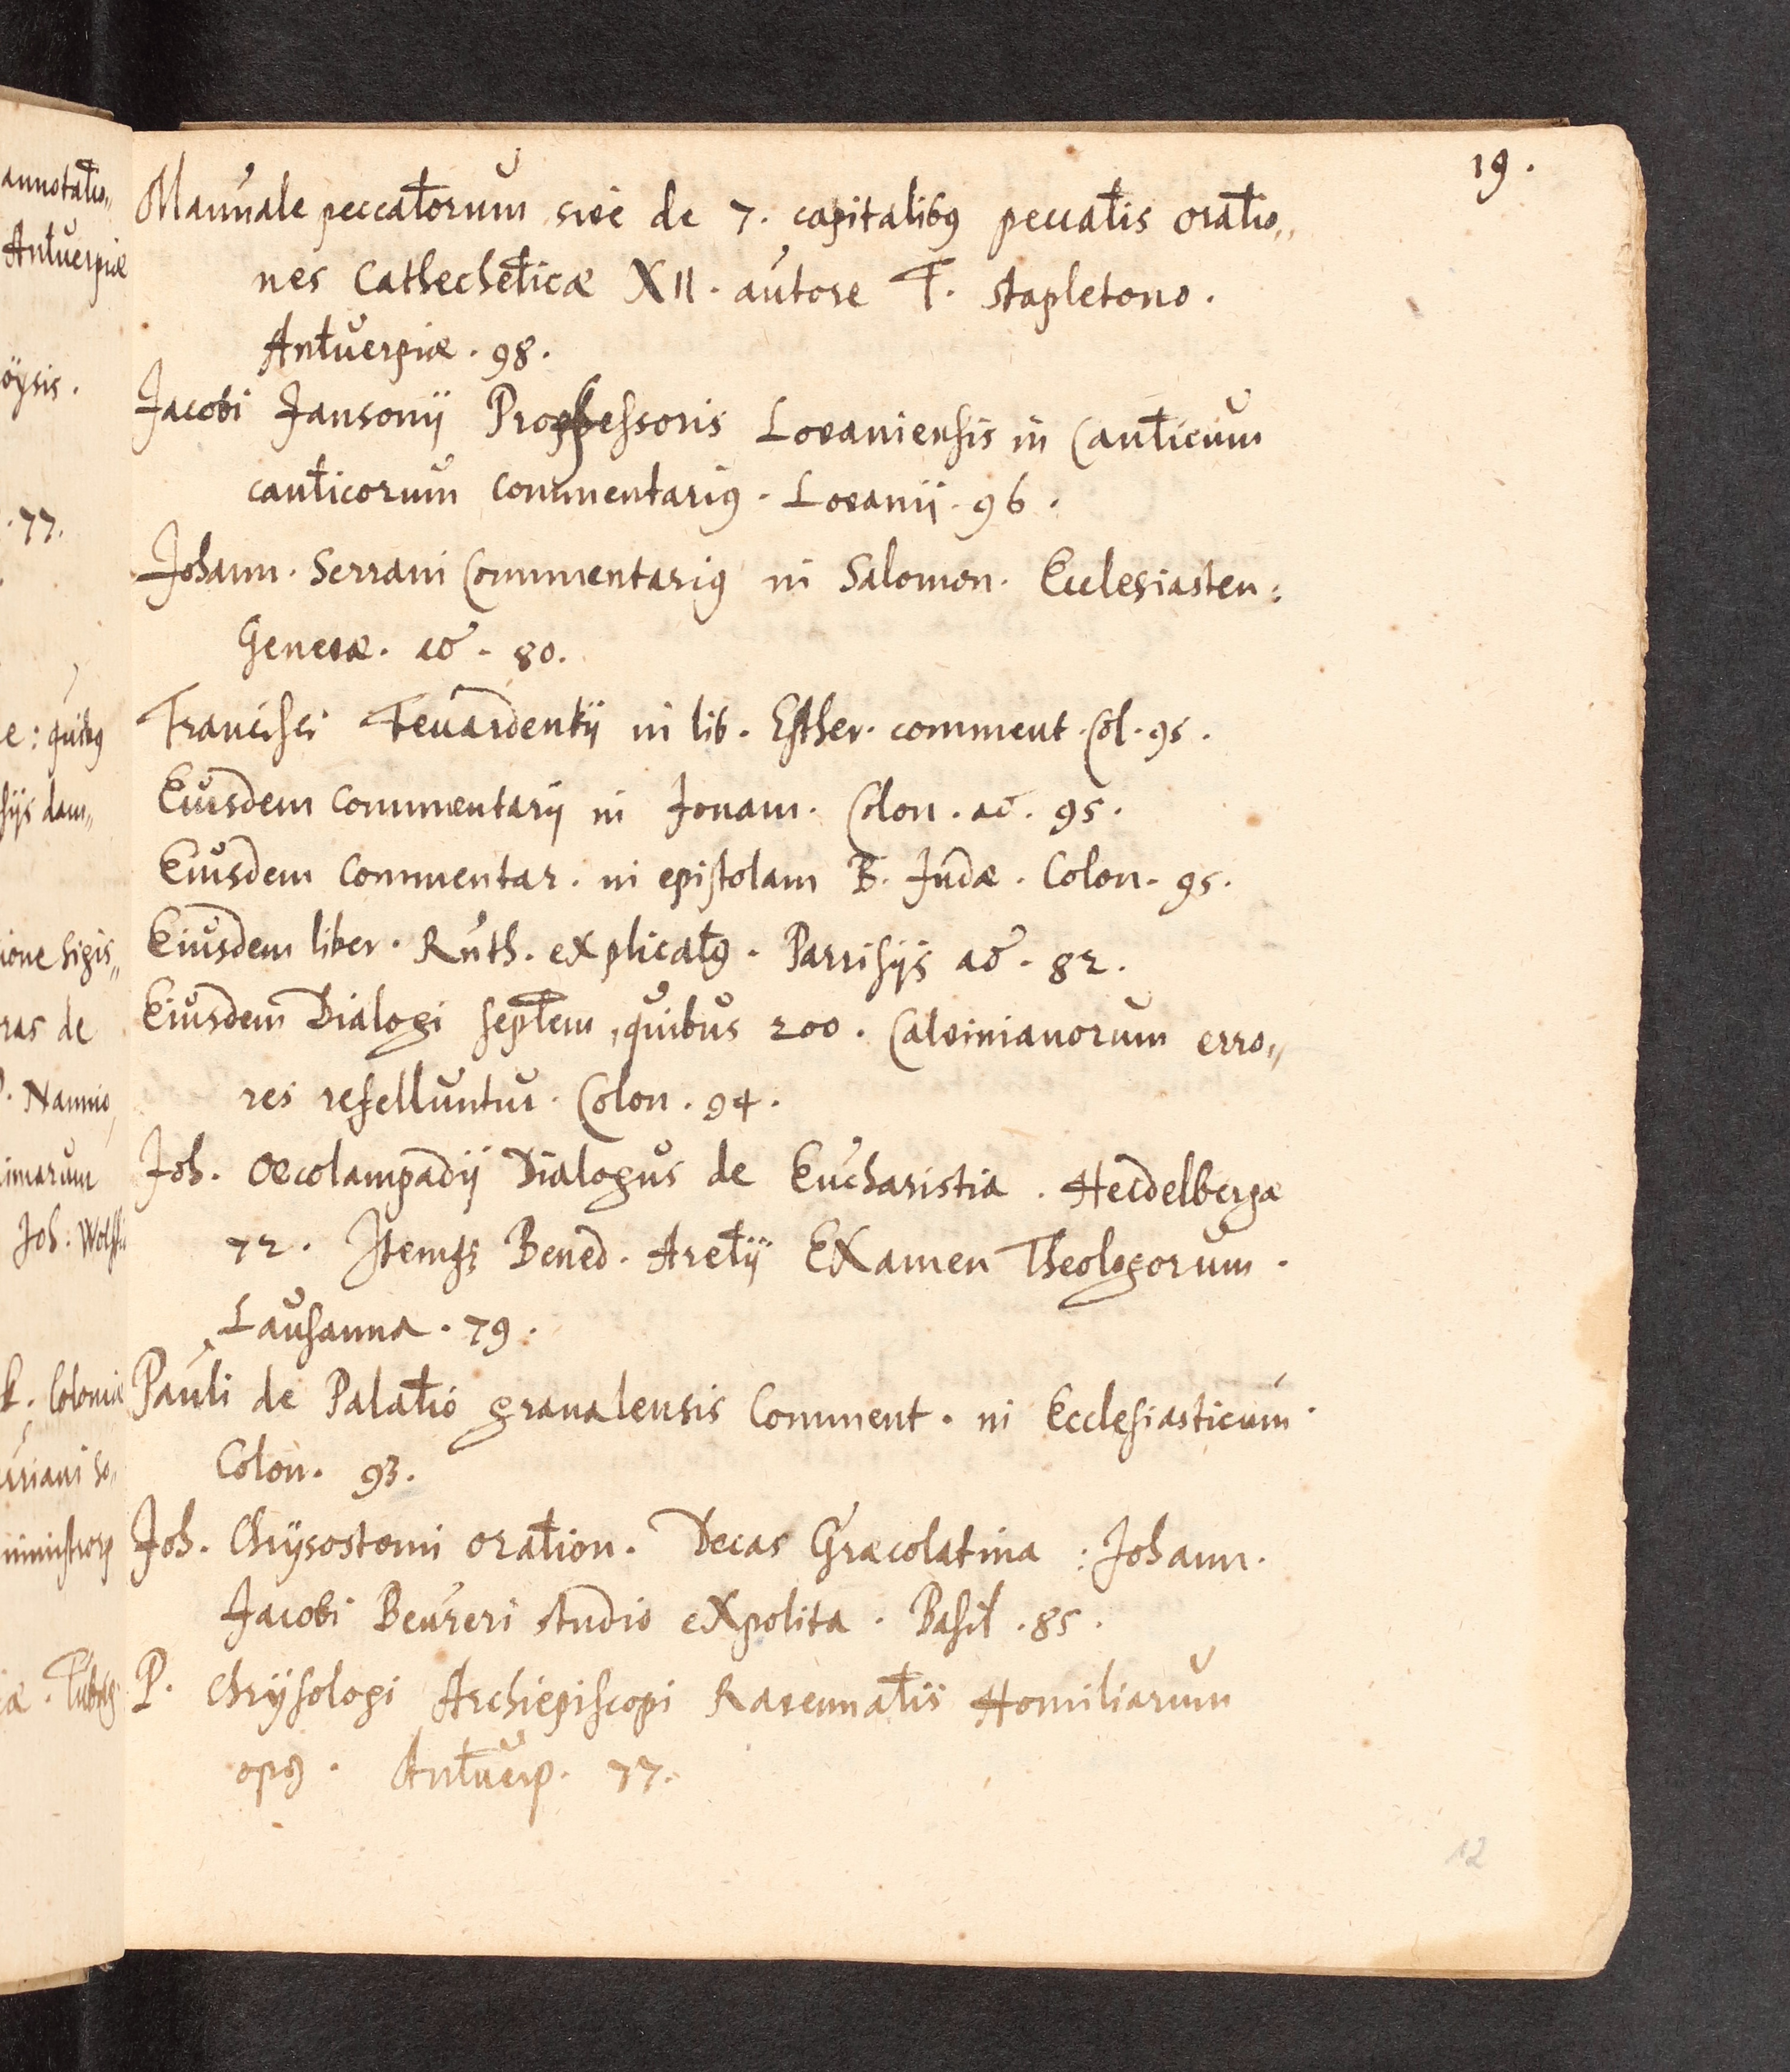 19.
annotatio„
Antuerpiæ
öysis.
. 77.
e: quibꝰ
sijs dam„
ione Sigis„
ras de
P. Nannio,
imarum
Joh: Wolfii
k. Coloniæ
iæ. Tubing
Manuale peccatorum sive de 7. capitalibꝰ peccatis oratio„
nes Cathecheticæ XII. autore T. Stapletono.
Antuerpiæ. 98.
Jacobi Jansonij Professoris Lovaniensis in Canticum
canticorum commentariꝰ. Lovanij. 96.
Johann. Serrani Commentariꝰ in Salomon. Ecclesiasten:
Genevæ. aõ. 80.
Francisci Feuardentij in lib. Esther. comment. Col. 95.
Eiusdem commentarij in Jonam. Colon. aõ. 95.
Eiusdem Commentar. in epistolam B. Judæ. Colon. 95.
Eiusdem liber. Ruth. explicatꝰ. Parrisijs aõ. 82.
Eiusdem Dialogi septem, quibus 200. Calvinianorum erro„
res refelluntur. Colon. 94.
Joh. Oecolampadij Dialogus de Eucharistia. Heidelbergæ
72. Itemqꝫ Bened. Aretij EXamen Theologorum.
Lausanna. 79.
Pauli de Palatio granatensis Comment. in Ecclesiasticum.
Colon. 93.
Joh. Chrysostomi oration. Decas Græcolatina: Johann.
Jacobi Beureri studio eXpolita. Basil. 85.
P. Chrysologi Archiepiscopi Ravennatis Homiliarum
opꝰ. Antuerp. 77.
12